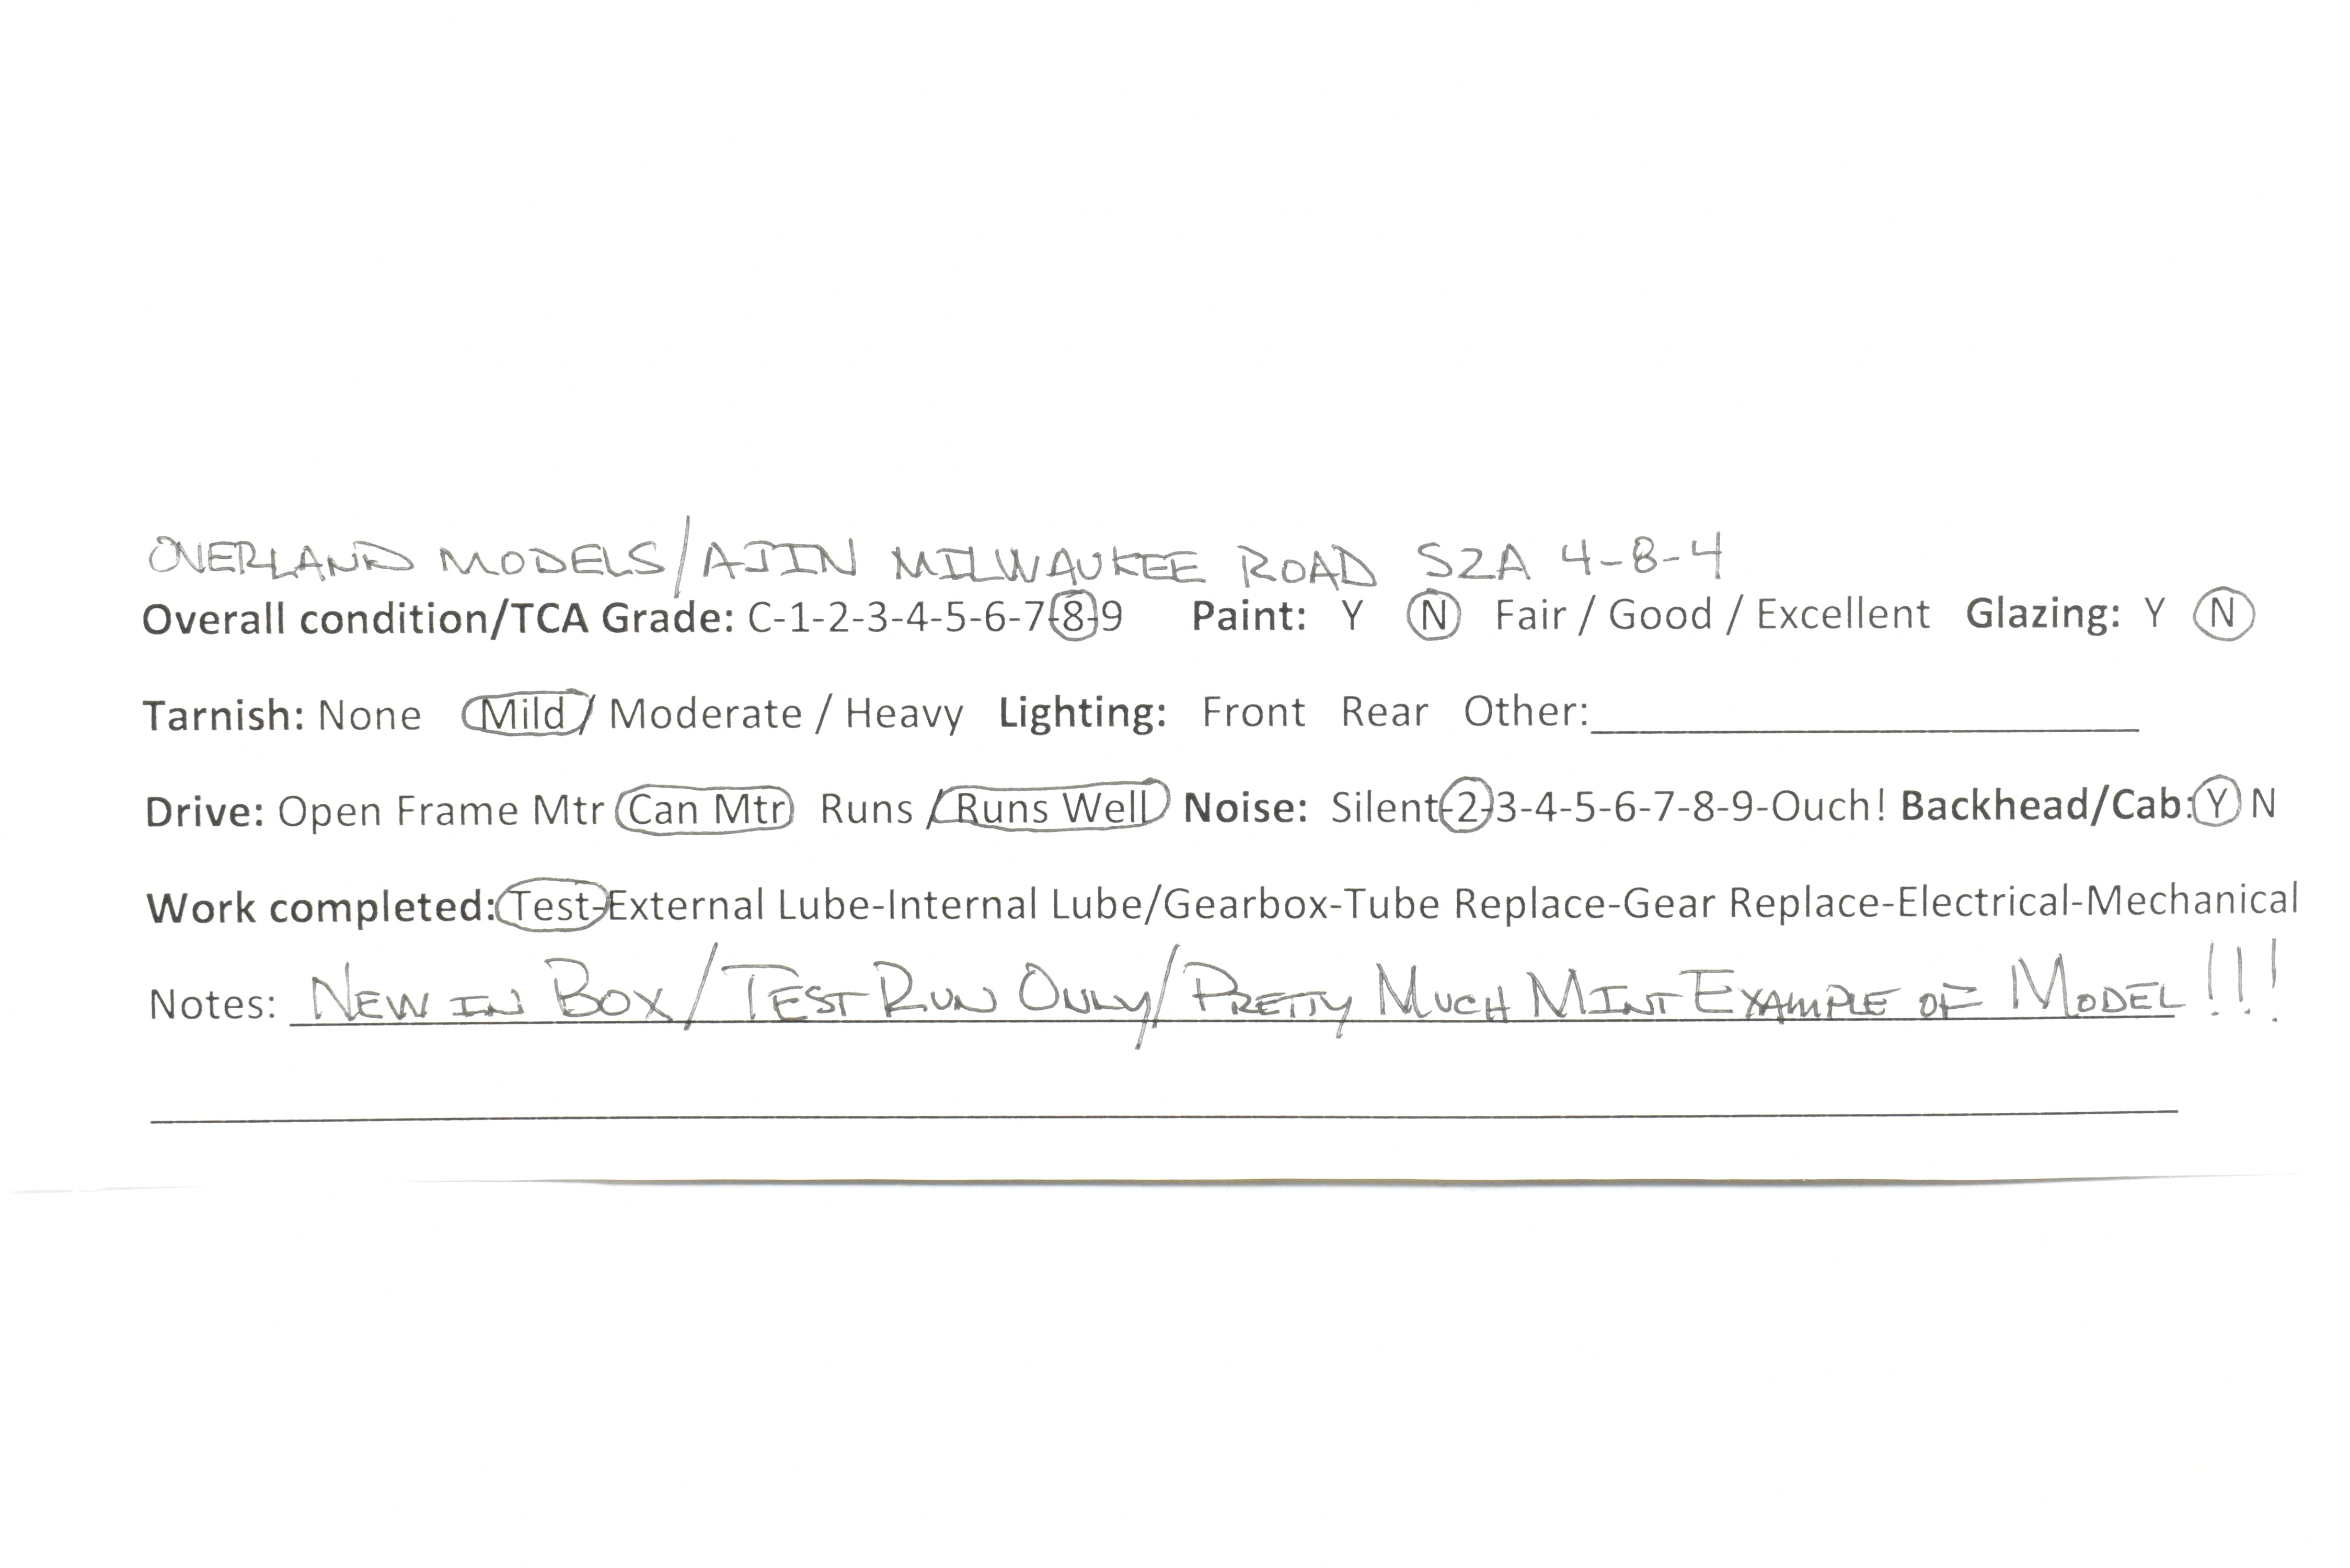 OVERLAND MODELS/AJIN MILWAUKEE ROAD S2A 4-8-4
Overall condition/TCA Grade: C-1-2-3-4-5-6-7-8-9 Paint: Y N Fair / Good / Excellent Glazing: Y N
Tarnish: None Mild / Moderate / Heavy Lighting: Front Rear Other:
Drive: Open Frame Mtr Can Mtr Runs / Runs Well Noise: Silent-2-3-4-5-6-7-8-9-Ouch! Backhead/Cab: Y N
Work completed: Test-External Lube-Internal Lube/Gearbox-Tube Replace-Gear Replace-Electrical-Mechanical
Notes: NEW IN BOX/TEST RUN ONLY/PRETTY MUCH MINT EXAMPLE OF MODEL!!!